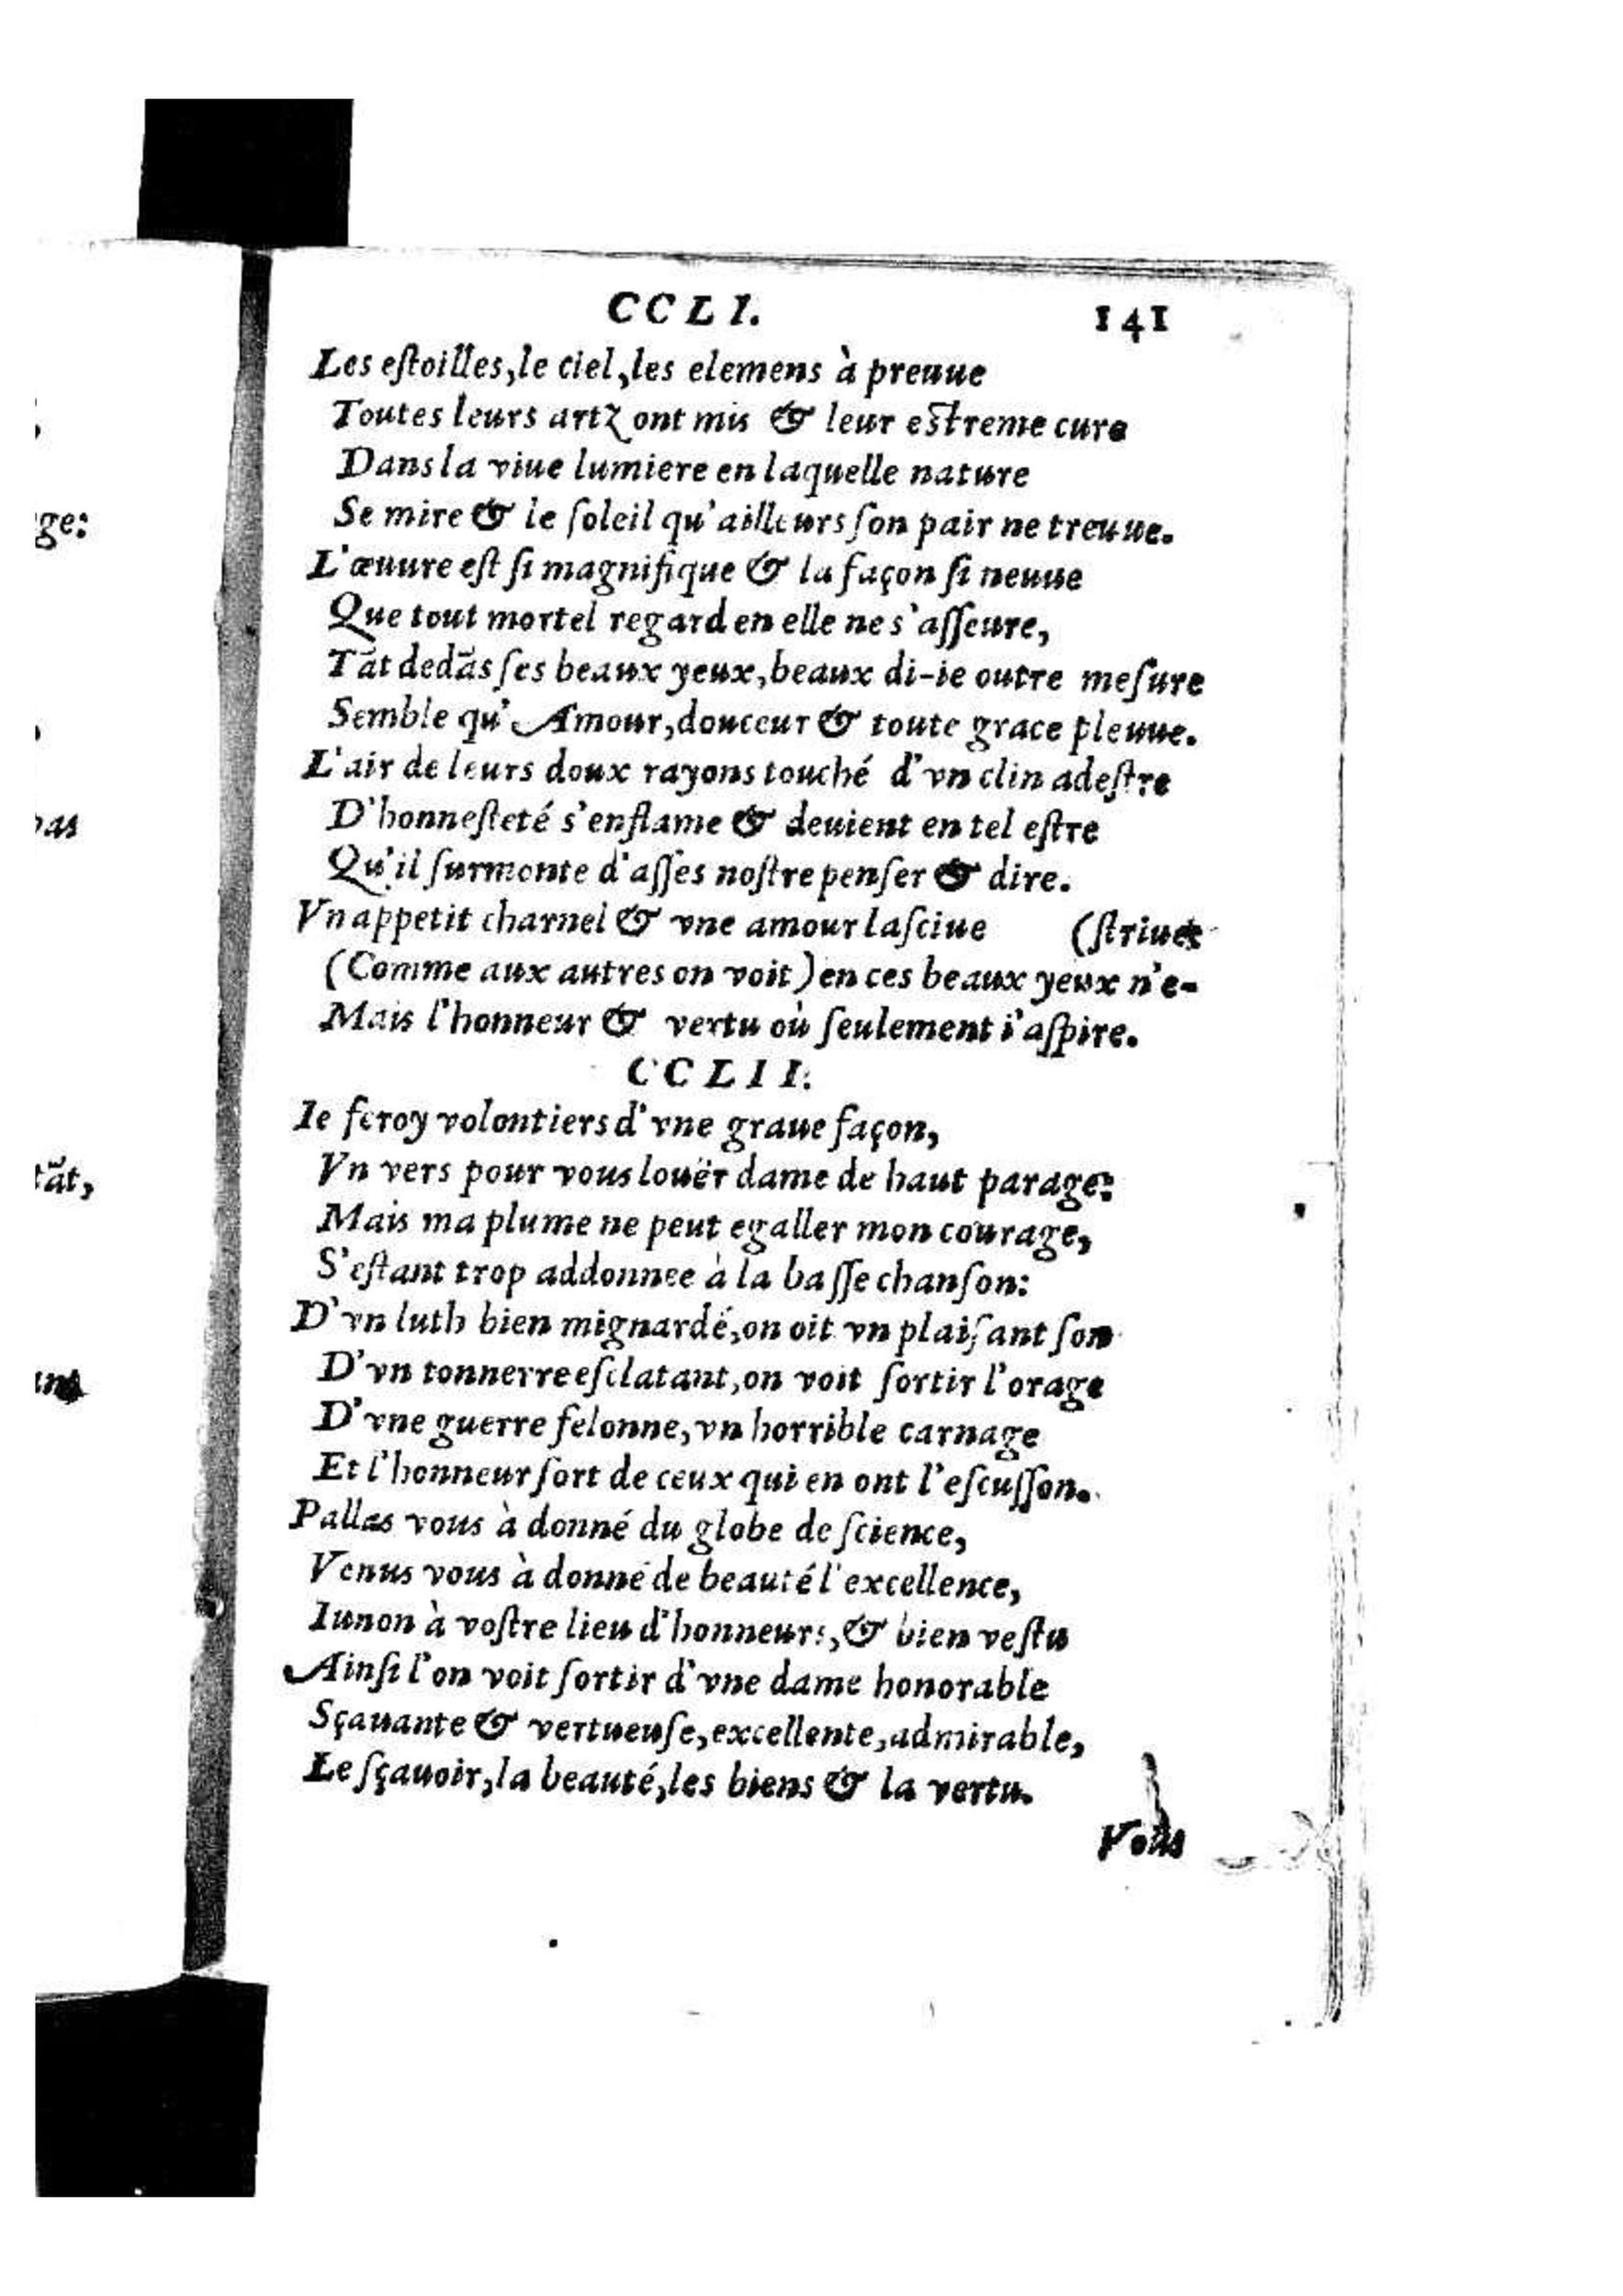 CCLI. 141
Les eſtoilles, le ciel, les elemens à preuue
Toutes leurs artz ont mis & leur eſtreme cure
Dans la viue lumiere en laquelle nature
Se mire & le ſoleil qu'ailleurs ſon pair ne treuue.
L'œuure eſt ſi magnifique & la façon ſi neuue
Que tout mortel regard en elle ne s'aſſeure,
Tãt dedãs ſes beaux yeux, beaux di-ie outre meſure
Semble qu'Amour, douceur & toute grace pleuue.
L'air de leurs doux rayons touché d'vn clin adeſtre
D'honneſteté s'enflame & deuient en tel eſtre
Qu'il ſurmonte d'aſſes noſtre penſer & dire.
Vn appetit charnel & vne amour laſciue (ſtriue
(Comme aux autres on voit) en ces beaux yeux n'e-
Mais l'honneur & vertu où ſeulement i'aſpire.
CCLII.
Ie feroy volontiers d'vne graue façon,
Vn vers pour vous louër dame de haut parage:
Mais ma plume ne peut egaller mon courage,
S'eſtant trop addonnee à la baſſe chanſon:
D'vn luth bien mignardé, on oit vn plaiſant ſon
D'vn tonnerre eſclatant, on voit ſortir l'orage
D'vne guerre felonne, vn horrible carnage
Et l'honneur ſort de ceux qui en ont l'eſcuſſon.
Pallas vous à donné du globe de ſcience,
Venus vous à donné de beauté l'excellence,
Iunon à voſtre lieu d'honneurs, & bien veſtu
Ainſi l'on voit ſortir d'vne dame honorable
Sçauante & vertueuſe, excellente, admirable,
Le ſçauoir, la beauté, les biens & la vertu.
Vous